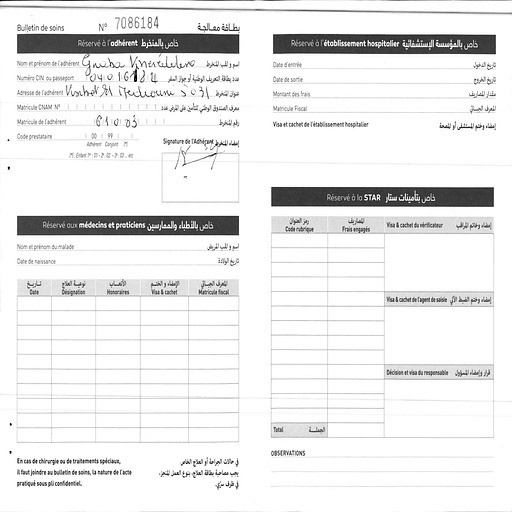 Bulletin de soins N° 7086184 بطاقة معالجة
Réservé à l'adhérent خاص بالمنخرط
Nom et prénom de l'adhérent اسم و لقب المنخرط
Numéro CIN ou passeport عدد بطاقة التعريف الوطنية أو جواز السفر
Adresse de l'adhérent 5031 عنوان المنخرط
Matricule CNAM N° معرف الصندوق الوطني للتأمين على المرض عدد
Matricule de l'adhérent 61003 رقم المنخرط
Code prestataire 00 99
Adhérent Conjoint (*)
(*) : Enfant 1er : 01 - 2è : 02 - 3è : 03 ... etc
Signature de l'Adhérent إمضاء المنخرط
Réservé aux médecins et praticiens خاص بالأطباء والممارسين
Nom et prénom du malade اسم و لقب المريض
Date de naissance تاريخ الولادة
تاريخ نوعية العلاج الأتعاب الإمضاء و الختم المعرف الجبائي
Date Désignation Honoraires Visa & cachet Matricule fiscal
En cas de chirurgie ou de traitements spéciaux,
il faut joindre au bulletin de soins, la nature de l'acte
pratiqué sous pli confidentiel.
في حالات الجراحة أو العلاج الخاص
يجب مصاحبة بطاقة العلاج، بنوع العمل المنجز،
في ظرف سري.
Réservé à l'établissement hospitalier خاص بالمؤسسة الإستشفائية
Date d'entrée تاريخ الدخول
Date de sortie تاريخ الخروج
Montant des frais مقدار المصاريف
Matricule Fiscal المعرف الجبائي
Visa et cachet de l'établissement hospitalier إمضاء وختم المستشفى أو المصحة
Réservé à la STAR خاص بتأمينات ستار
رمز العنوان المصاريف
Code rubrique Frais engagés
Visa & cachet du vérificateur إمضاء وخاتم المراقب
Visa & cachet de l'agent de saisie إمضاء وختم الضبط الآلي
Décision et visa du responsable قرار وإمضاء المسؤول
Total الجملة
OBSERVATIONS